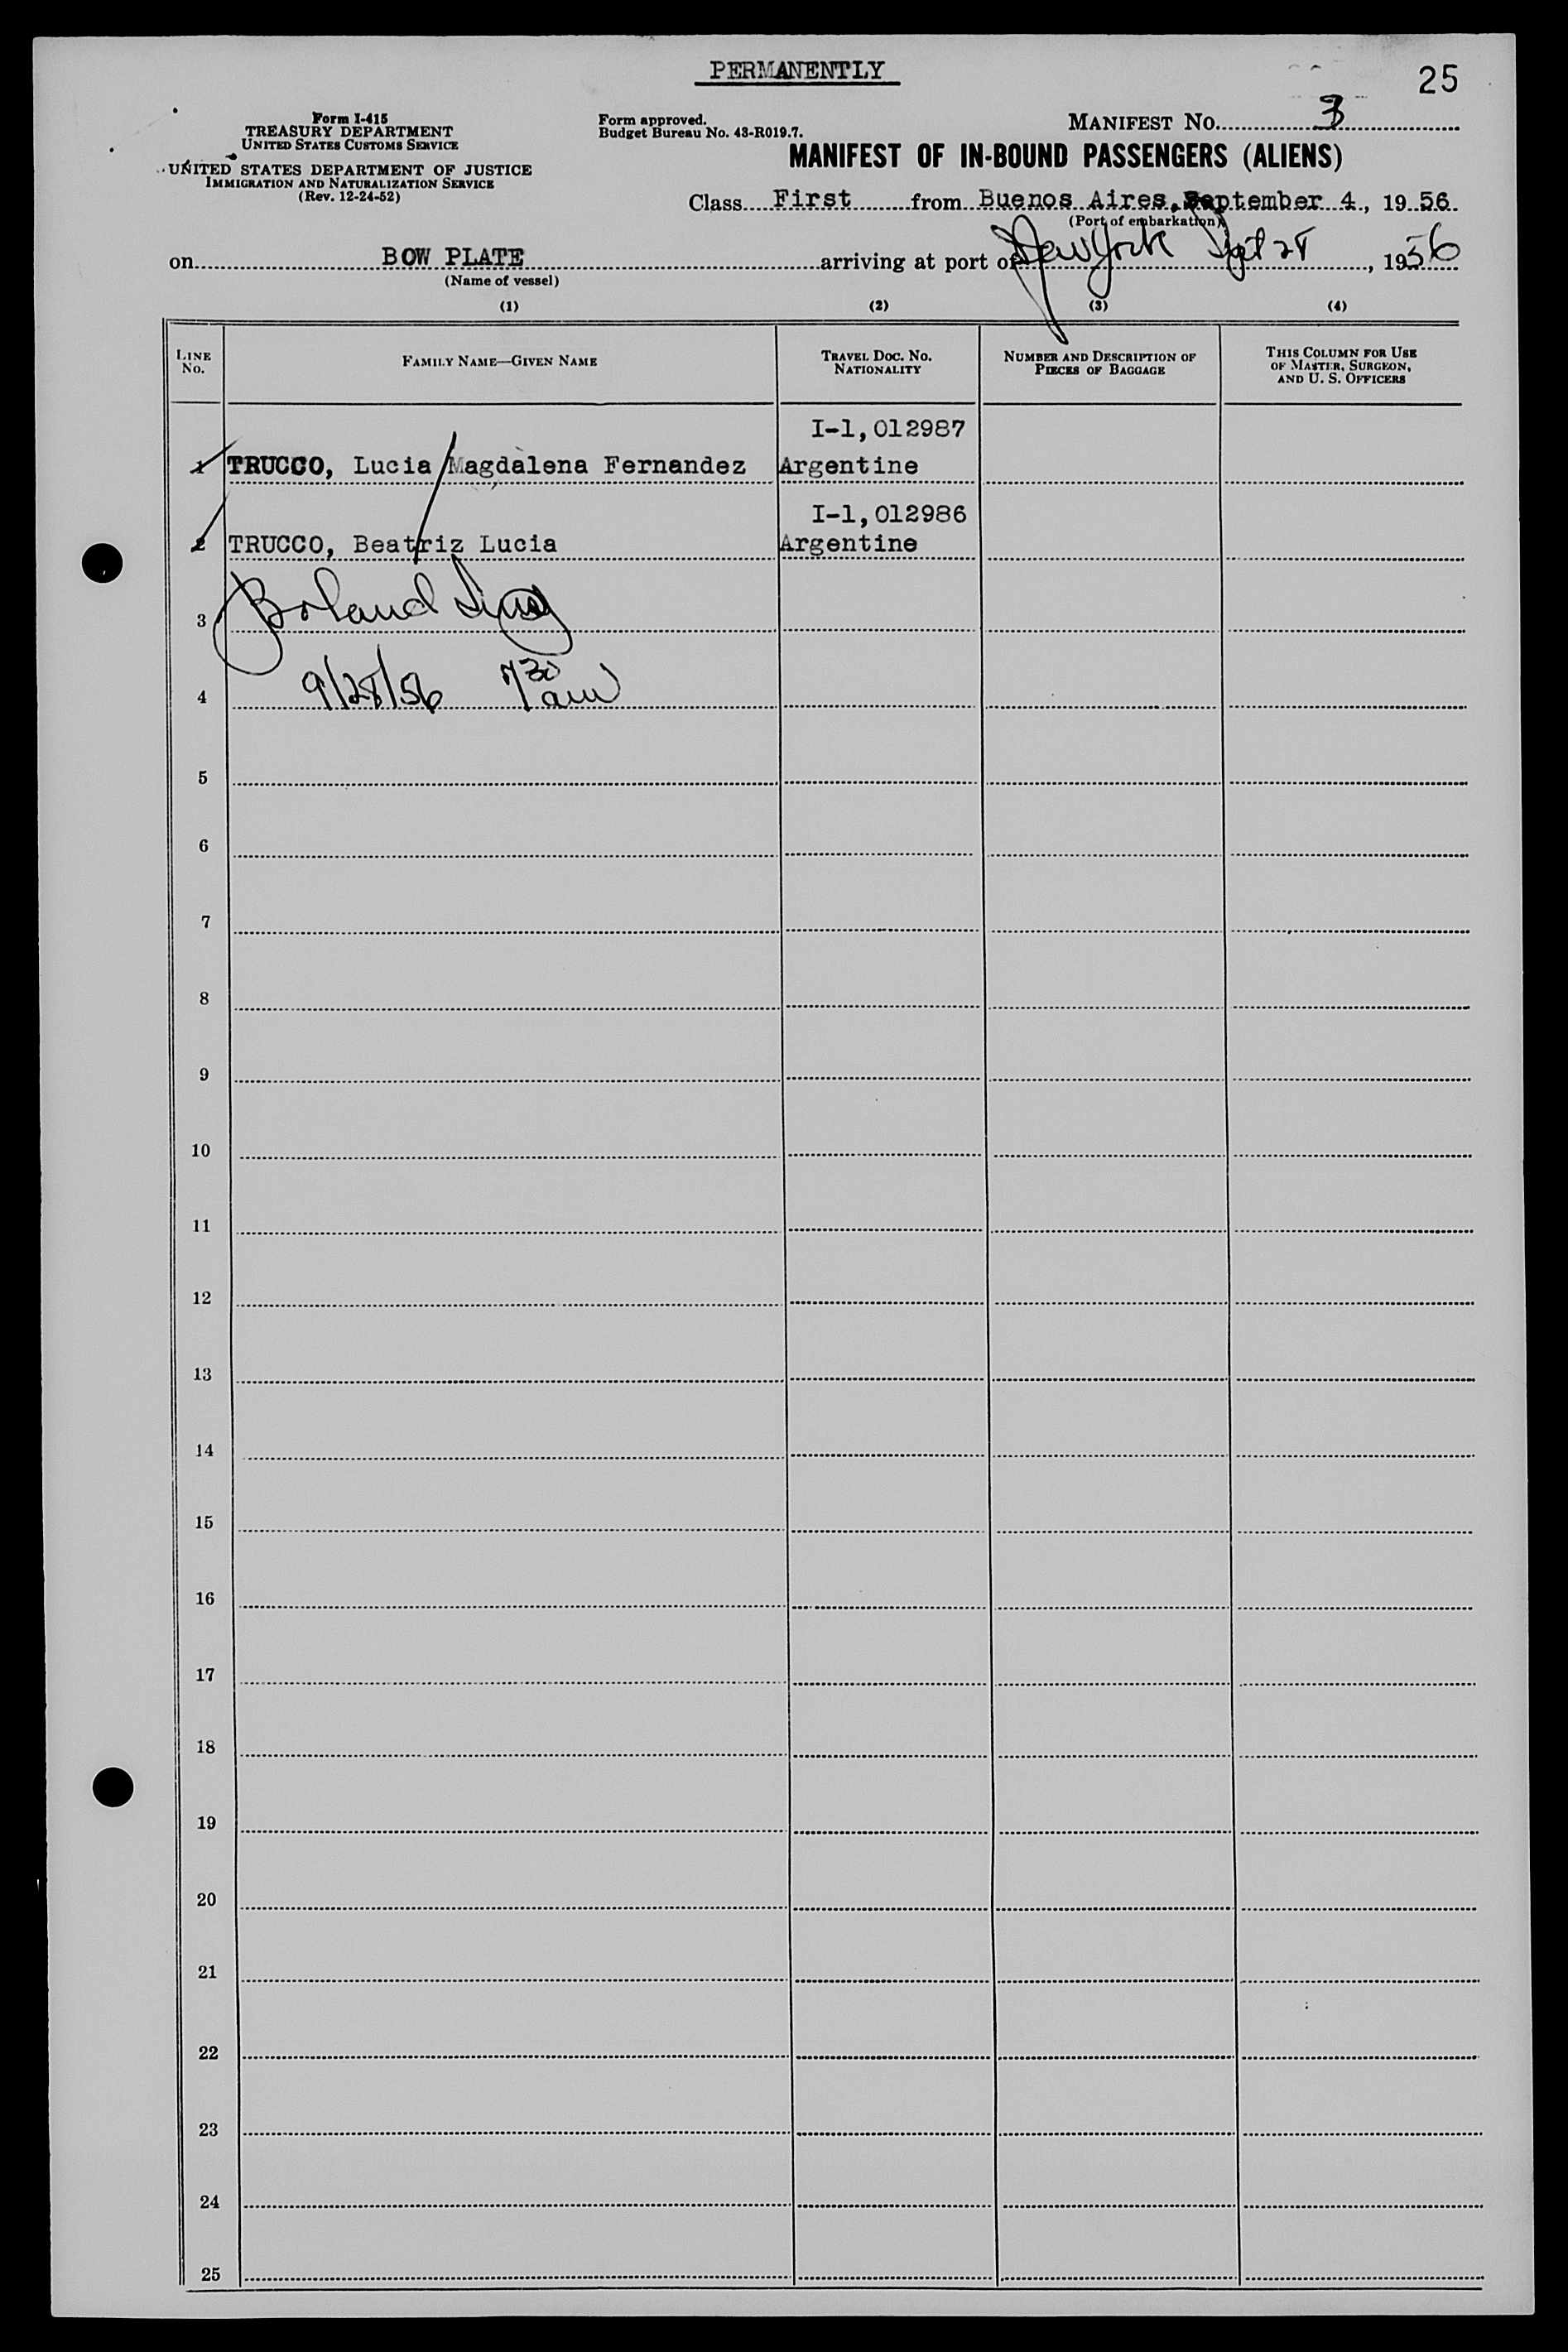 PERMANENTLY
25
Form I-415
TREASURY DEPARTMENT
UNITED STATES CUSTOMS SERVICE
UNITED STATES DEPARTMENT OF JUSTICE
IMMIGRATION AND NATURALIZATION SERVICE
(Rev. 12-24-52)
Form approved.
Budget Bureau No. 43-R019.7.
MANIFEST NO. 3
MANIFEST OF IN-BOUND PASSENGERS (ALIENS)
Class First from Buenos Aires, September 4, 1956
(Port of embarkation)
on BOW PLATE arriving at port of New York Sept 28, 1956
(Name of vessel)
(1) (2) (3) (4)
LINE NO. FAMILY NAME—GIVEN NAME TRAVEL DOC. NO. NATIONALITY NUMBER AND DESCRIPTION OF PIECES OF BAGGAGE THIS COLUMN FOR USE OF MASTER, SURGEON, AND U. S. OFFICERS
I-1,012987
1 TRUCCO, Lucia Magdalena Fernandez Argentine
I-1,012986
2 TRUCCO, Beatriz Lucia Argentine
3 
4 9/28/56 7 30 am
5
6
7
8
9
10
11
12
13
14
15
16
17
18
19
20
21
22
23
24
25